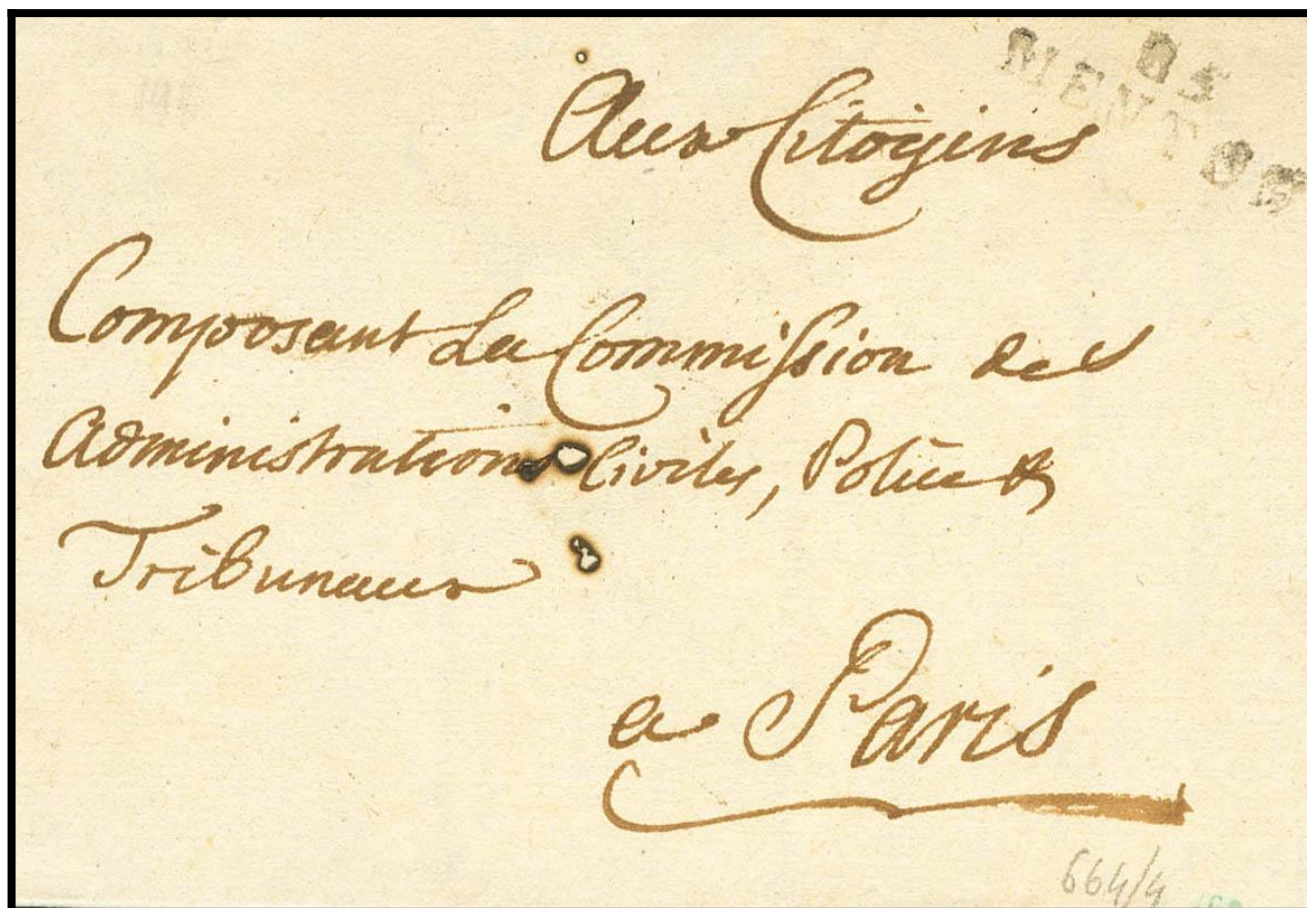 85
MENTON
Aux Citoyens
Composant La Commission des
Administrations Civiles, Police &
Tribunaux
a Paris
664/4